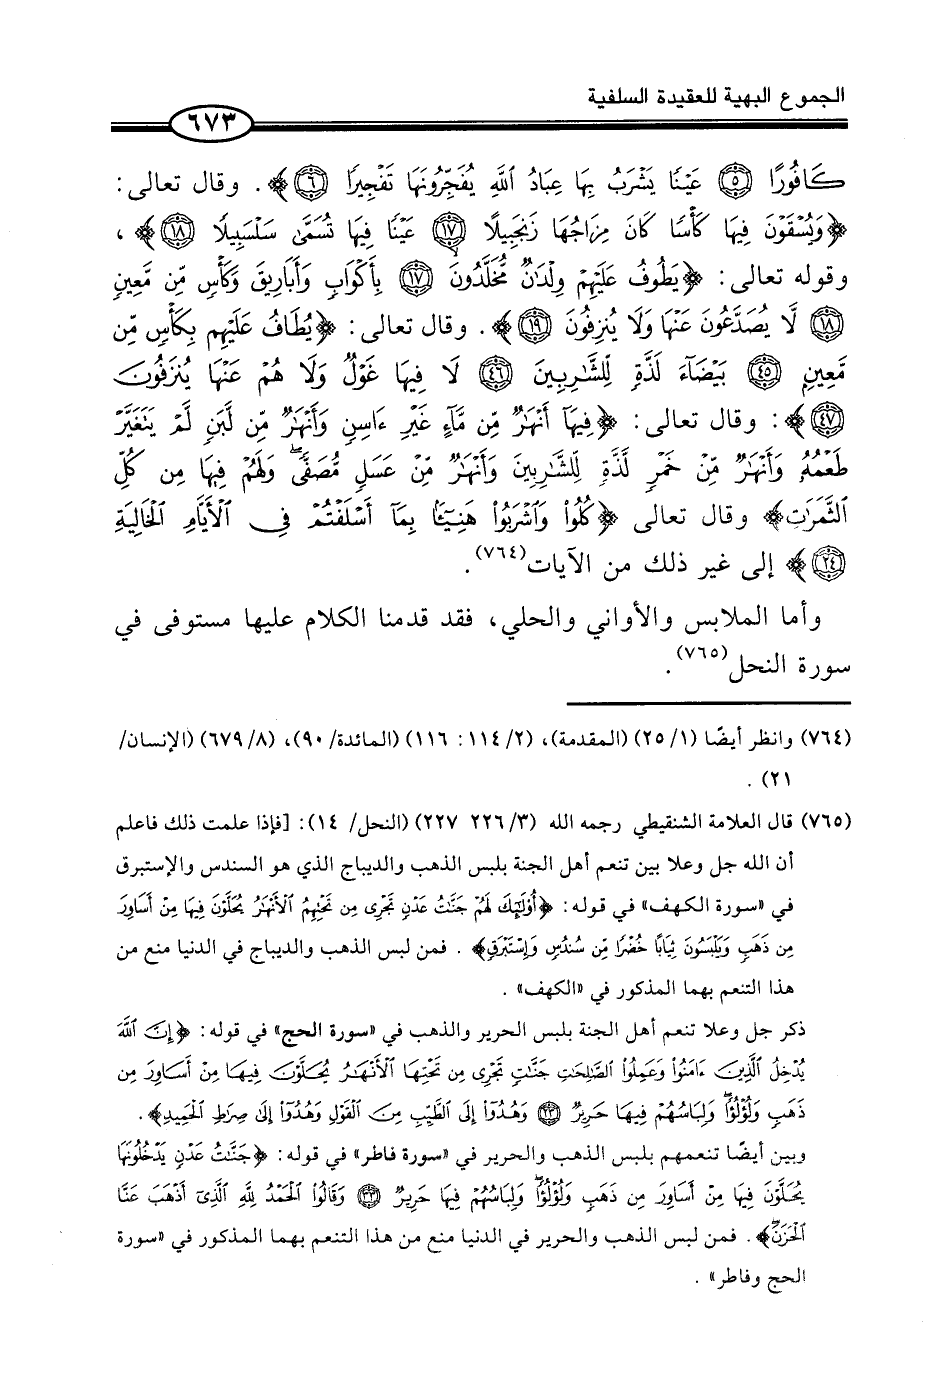 الجموع البهية للعقيدة السلفية
٦٧٣
كَافُورًا ﴿٥﴾ عَيْنًا يَشْرَبُ بِهَا عِبَادُ ٱللَّهِ يُفَجِّرُونَهَا تَفْجِيرًا ﴿٦﴾﴾ . وقال تعالى :
﴿وَيُسْقَوْنَ فِيهَا كَأْسًا كَانَ مِزَاجُهَا زَنجَبِيلًا ﴿١٧﴾ عَيْنًا فِيهَا تُسَمَّىٰ سَلْسَبِيلًا ﴿١٨﴾﴾ ،
وقوله تعالى : ﴿يَطُوفُ عَلَيْهِمْ وِلْدَٰنٌ مُّخَلَّدُونَ ﴿١٧﴾ بِأَكْوَابٍ وَأَبَارِيقَ وَكَأْسٍ مِّن مَّعِينٍ
﴿١٨﴾ لَّا يُصَدَّعُونَ عَنْهَا وَلَا يُنزِفُونَ ﴿١٩﴾﴾ . وقال تعالى : ﴿يُطَافُ عَلَيْهِم بِكَأْسٍ مِّن
مَّعِينٍ ﴿٤٥﴾ بَيْضَآءَ لَذَّةٍ لِّلشَّٰرِبِينَ ﴿٤٦﴾ لَا فِيهَا غَوْلٌ وَلَا هُمْ عَنْهَا يُنزَفُونَ
﴿٤٧﴾﴾ : وقال تعالى : ﴿فِيهَآ أَنْهَٰرٌ مِّن مَّآءٍ غَيْرِ ءَاسِنٍ وَأَنْهَٰرٌ مِّن لَّبَنٍ لَّمْ يَتَغَيَّرْ
طَعْمُهُۥ وَأَنْهَٰرٌ مِّنْ خَمْرٍ لَّذَّةٍ لِّلشَّٰرِبِينَ وَأَنْهَٰرٌ مِّنْ عَسَلٍ مُّصَفًّى ۖ وَلَهُمْ فِيهَا مِن كُلِّ
ٱلثَّمَرَٰتِ﴾ وقال تعالى ﴿كُلُوا۟ وَٱشْرَبُوا۟ هَنِيٓـًٔۢا بِمَآ أَسْلَفْتُمْ فِى ٱلْأَيَّامِ ٱلْخَالِيَةِ
﴿٢٤﴾﴾ إلى غير ذلك من الآيات(٧٦٤) .
وأما الملابس والأواني والحلي، فقد قدمنا الكلام عليها مستوفى في
سورة النحل(٧٦٥) .
(٧٦٤) وانظر أيضًا (١/ ٢٥) (المقدمة)، (٢/ ١١٤ : ١١٦) (المائدة/ ٩٠)، (٨/ ٦٧٩) (الإنسان/
٢١) .
(٧٦٥) قال العلامة الشنقيطي رحمه الله (٣/ ٢٢٦ ٢٢٧) (النحل/ ١٤): [فإذا علمت ذلك فاعلم
أن الله جل وعلا بين تنعم أهل الجنة بلبس الذهب والديباج الذي هو السندس والإستبرق
في «سورة الكهف» في قوله: ﴿أُو۟لَٰٓئِكَ لَهُمْ جَنَّٰتُ عَدْنٍ تَجْرِى مِن تَحْتِهِمُ ٱلْأَنْهَٰرُ يُحَلَّوْنَ فِيهَا مِنْ أَسَاوِرَ
مِن ذَهَبٍ وَيَلْبَسُونَ ثِيَابًا خُضْرًا مِّن سُندُسٍ وَإِسْتَبْرَقٍ﴾ . فمن لبس الذهب والديباج في الدنيا منع من
هذا التنعم بهما المذكور في «الكهف» .
ذكر جل وعلا تنعم أهل الجنة بلبس الحرير والذهب في «سورة الحج» في قوله: ﴿إِنَّ ٱللَّهَ
يُدْخِلُ ٱلَّذِينَ ءَامَنُوا۟ وَعَمِلُوا۟ ٱلصَّٰلِحَٰتِ جَنَّٰتٍ تَجْرِى مِن تَحْتِهَا ٱلْأَنْهَٰرُ يُحَلَّوْنَ فِيهَا مِنْ أَسَاوِرَ مِن
ذَهَبٍ وَلُؤْلُؤًا ۖ وَلِبَاسُهُمْ فِيهَا حَرِيرٌ ﴿٢٣﴾ وَهُدُوٓا۟ إِلَى ٱلطَّيِّبِ مِنَ ٱلْقَوْلِ وَهُدُوٓا۟ إِلَىٰ صِرَٰطِ ٱلْحَمِيدِ﴾ .
وبين أيضًا تنعمهم بلبس الذهب والحرير في «سورة فاطر» في قوله: ﴿جَنَّٰتُ عَدْنٍ يَدْخُلُونَهَا
يُحَلَّوْنَ فِيهَا مِنْ أَسَاوِرَ مِن ذَهَبٍ وَلُؤْلُؤًا ۖ وَلِبَاسُهُمْ فِيهَا حَرِيرٌ ﴿٣٣﴾ وَقَالُوا۟ ٱلْحَمْدُ لِلَّهِ ٱلَّذِىٓ أَذْهَبَ عَنَّا
ٱلْحَزَنَ ۖ﴾ . فمن لبس الذهب والحرير في الدنيا منع من هذا التنعم بهما المذكور في «سورة
الحج وفاطر» .